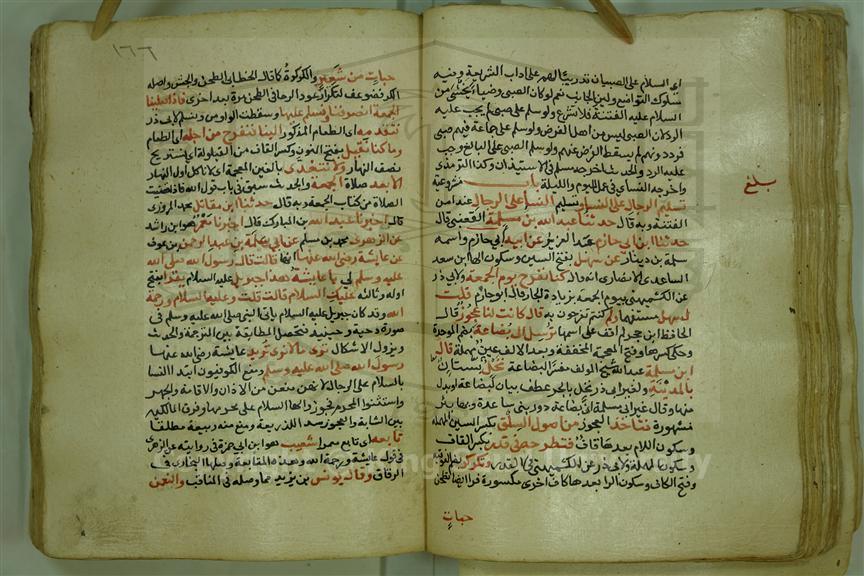 اي السلام على الصبيان تدريبا لهم على اداب الشريعة وفيه
سلوك التواضع ولين الجانب نعم لو كان الصبي وضيئا يخشى من
السلام عليه الفتنة فلا يشرع ولو سلم صبي لم يجب عليه
الرد لان الصبي ليس من اهل الفرض ولو سلم على جماعة فيهم صبي
فرد دونهم لم يسقط الفرض عنهم ولو سلم الصبي على البالغ وجب
عليه الرد والحديث اخرجه مسلم في الاستيذان وكذا الترمذي
واخرجه النساي في عمل اليوم والليلة باب مشروعية
تسليم الرجال على النسا وتسليم النسا على الرجال عند امن
الفتنة وبه قال حدثنا عبد الله بن مسلمة القعنبي قال
حدثنا ابن ابي حازم عبد العزيز عن ابيه ابي حازم واسمه
سلمة بن دينار عن سهل بفتح السين وسكون الها ابن سعد
الساعدي الانصاري انه قال كنا نفرح يوم الجمعة ولابي ذر
عن الكشميهني بيوم الجمعة بزيادة الجار قال ابو حازم قلت
لسهل مستفهما ولم كنتم تفرحون به قال كانت لنا عجوز قال
الحافظ ابن حجر لم اقف على اسمها ترسل الى بضاعة بضم الموحدة
وحكي كسرها وفتح المعجمة المخففة وبعد الالف عين مهملة قال
ابن مسلمة عبد الله شيخ المولف مفسرا لبضاعة نخل بستان
بالمدينة ولغير ابي ذر نخل بالجر عطف بيان لبضاعة او بدل
منها وقال غير ابن مسلمة ان بضاعة دور بني ساعدة وبها بئر
مشهورة فتاخذ العجوز من اصول السلق بكسر السين المهملة
وسكون اللام بعدها قاف فتطرحه في قدر بكسر القاف
وسكون المهملة ولابي ذر عن الكشميهني في القدر وتكركر بضم الفوقية
وفتح الكاف وسكون الرا بعدها كاف اخرى مكسورة فرا ايضا تطحن
حبات
بلغ
١٦٦
حبات من شعير والكركرة كما قال الخطابي الطحن والجش واصله
الكر فضوعف لتكرار عود الرحا في الطحن مرة بعد اخرى فاذا صلينا
الجمعة انصرفنا ونسلم عليها وسقطت الواو من ونسلم لابي ذر
فتقدمه اي الطعام المذكور الينا فنفرح من اجله اي الطعام
وما كنا نقيل بفتح النون وكسر القاف من القيلولة اي نستريح
نصف النهار ولا نتغدى بالغين المعجمة اي ناكل اول النهار
الا بعد صلاة الجمعة والحديث سبق في باب قول الله فاذا قضيت
الصلاة من كتاب الجمعة وبه قال حدثنا ابن مقاتل محمد المروزي
قال اخبرنا عبد الله بن المبارك قال اخبرنا معمر هو ابن راشد
عن الزهري محمد بن مسلم عن ابي سلمة بن عبد الرحمن بن عوف
عن عايشة رضي الله عنها انها قالت قال رسول الله صلى الله
عليه وسلم لي يا عايشة هذا جبريل عليه السلام يقرا بفتح
اوله وثالثه عليك السلام قالت قلت وعليه السلام ورحمة
الله وقد كان جبريل عليه السلام ياتي النبي صلى الله عليه وسلم في
صورة دحية وحينئذ فتحصل المطابقة بين الترجمة والحديث
ويزول الاشكال ترى ما لا نرى تريد عايشة رضي الله عنها
رسول الله صلى الله عليه وسلم ومنع الكوفيون ابتدا النسا
بالسلام على الرجال لانهن منعن من الاذان والاقامة والجهر
واستثنوا المحرم فجوزوا لها السلام على محرمها وفرق المالكية
بين الشابة والعجوز سدا للذريعة ومنع منه ربيعة مطلقا
تابعه اي تابع معمرا شعيب هو ابن ابي حمزة في روايته عن الزهري
في قول عايشة ورحمة الله وهذه المتابعة وصلها البخاري في
الرقاق وقال يونس بن يزيد مما وصله في المناقب والنعمن